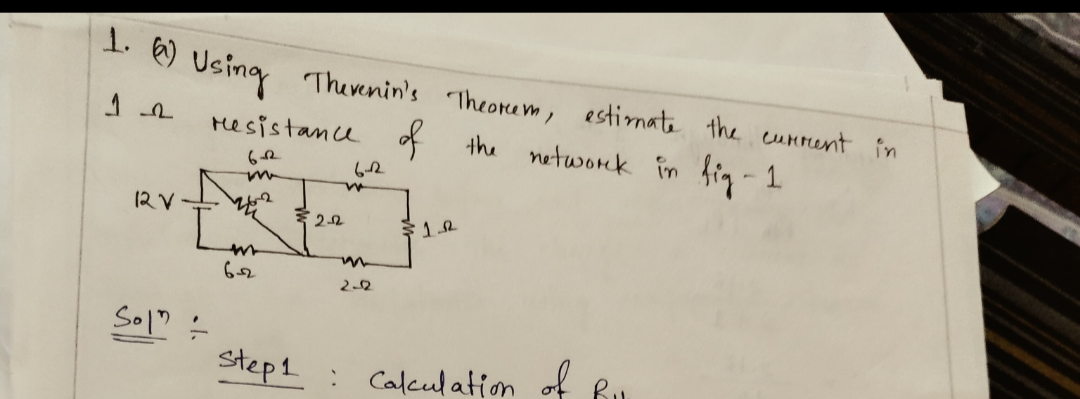 1. (a) Using Thevenin's Theorem, estimate the current in
1 Ω resistance of the network in fig-1
6Ω 6Ω
12V 6Ω 2Ω 1Ω
6Ω 2Ω
Solⁿ ÷
Step1 : Calculation of